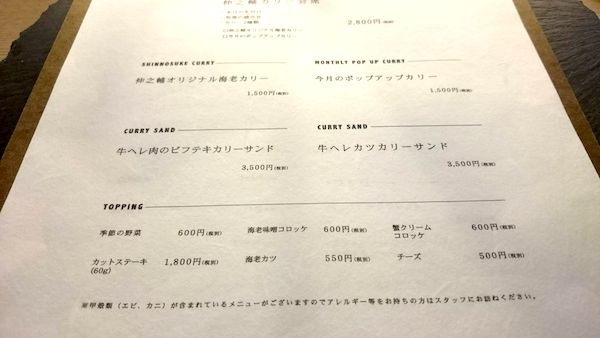 仲之輔カリー 会席
2,800円(税別)
SHINNOSUKE CURRY
仲之輔オリジナル海老カリー
1,500円(税別)
MONTHLY POP UP CURRY
今月のポップアップカリー
1,500円(税別)
CURRY SAND
牛ヘレ肉のビフテキカリーサンド
3,500円(税別)
CURRY SAND
牛ヘレカツカリーサンド
3,500円(税別)
TOPPING
季節の野菜 600円(税別) 海老味噌コロッケ 600円(税別) 蟹クリーム 600円(税別)
コロッケ
カットステーキ 1,800円(税別) 海老カツ 550円(税別) チーズ 500円(税別)
(60g)
※甲殻類（エビ、カニ）が含まれているメニューがございますのでアレルギー等をお持ちの方はスタッフにお訊ねください。